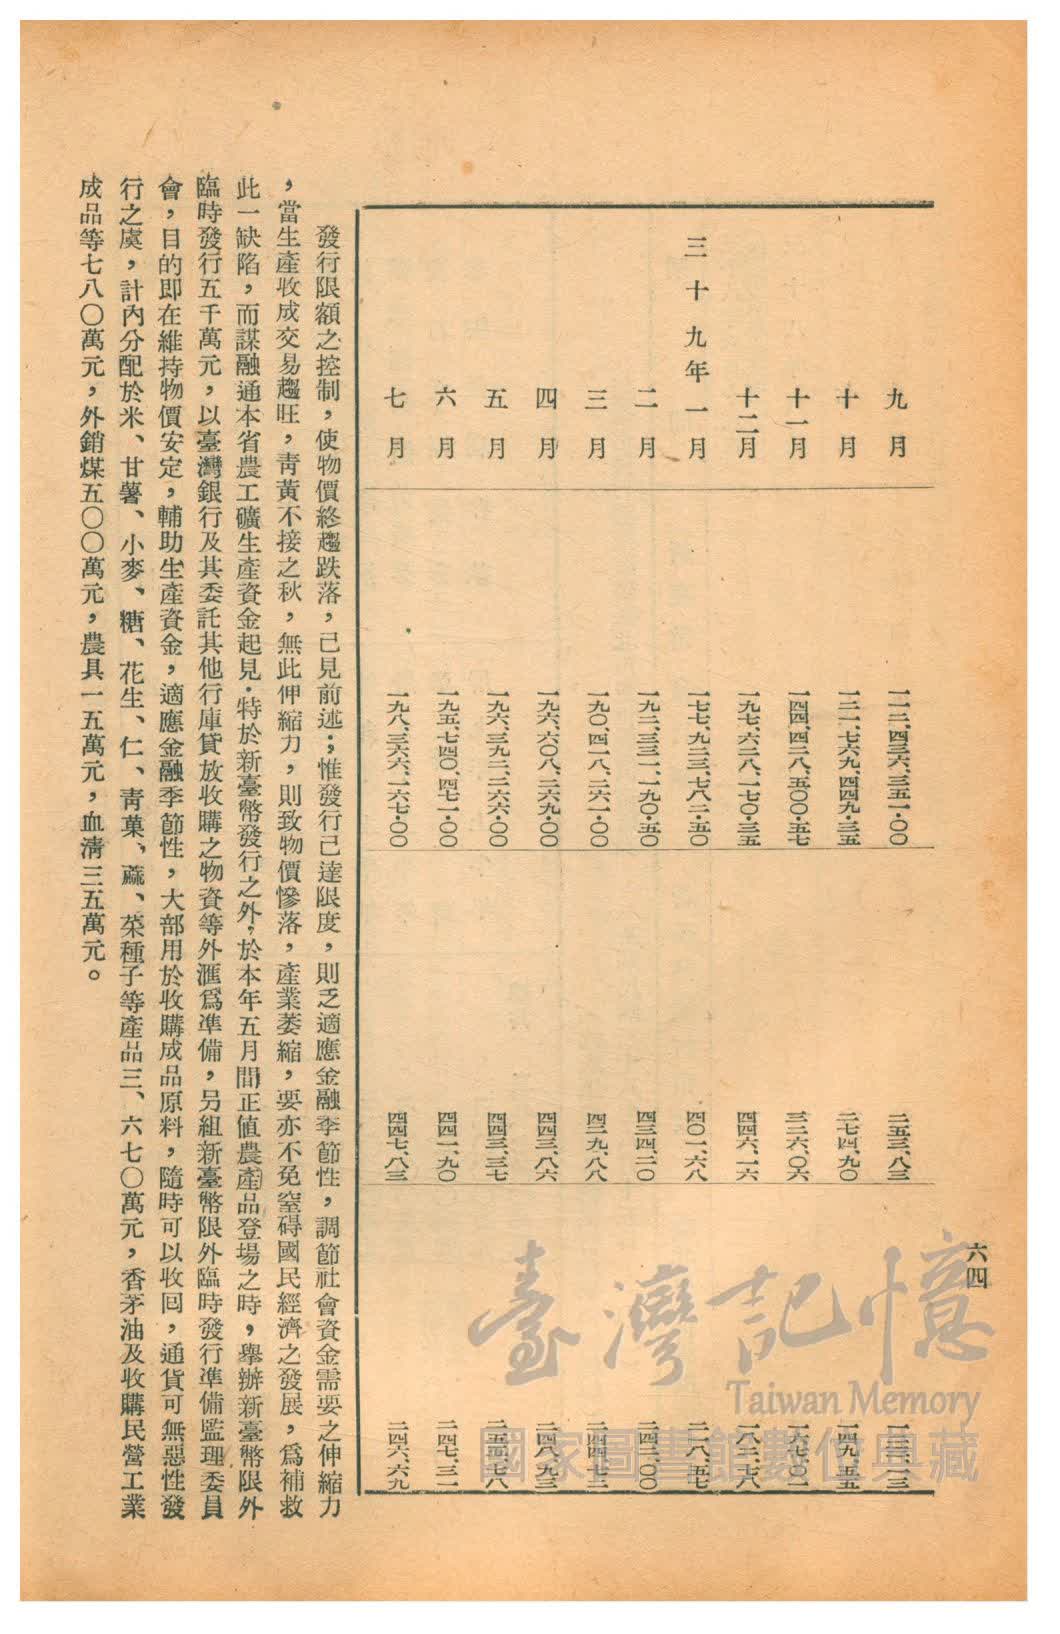 六四
九月 一一二、四三六、三五一・〇〇 二五三、八三
十月 一二一、七六九、四四九・三五 二七四、九〇 一四九、五五
十一月 一四四、四二八、五〇〇・五七 三二六、〇六 一六七、〇二
十二月 一九七、六二八、一七〇・三五 四四六、一六 一八二、七八
三十九年一月 一七七、九二三、七八二・五〇 四〇一、六八 二一八、五七
二月 一九二、三三一、一九〇・五〇 四三四、二〇 二四二、〇〇
三月 一九〇、四一八、二六一・〇〇 四二九、八八 二四四、七三
四月 一九六、六〇八、二六九・〇〇 四四三、八六 二四八、九三
五月 一九六、三九二、二六六・〇〇 四四三、三七
六月 一九五、七四〇、四七一・〇〇 四四一、九〇 二四七、三一
七月 一九八、三六六、一六七・〇〇 四四七、八三 二四六、六九
發行限額之控制，使物價終趨跌落，已見前述；惟發行已達限度，則乏適應金融季節性，調節社會資金需要之伸縮力
，當生產收成交易趨旺，青黃不接之秋，無此伸縮力，則致物價慘落，產業萎縮，要亦不免窒碍國民經濟之發展，爲補救
此一缺陷，而謀融通本省農工礦生產資金起見・特於新臺幣發行之外，於本年五月間正値農產品登場之時，舉辦新臺幣限外
臨時發行五千萬元，以臺灣銀行及其委託其他行庫貸放收購之物資等外滙爲準備，另組新臺幣限外臨時發行準備監理委員
會，目的即在維持物價安定，輔助生產資金，適應金融季節性，大部用於收購成品原料，隨時可以收回，通貨可無惡性發
行之虞，計內分配於米、甘薯、小麥、糖、花生、仁、青菓、蔴、菜種子等產品三、六七〇萬元，香茅油及收購民營工業
成品等七八〇萬元，外銷煤五〇〇萬元，農具一五萬元，血清三五萬元。
臺灣記憶
Taiwan Memory
國家圖書館數位典藏